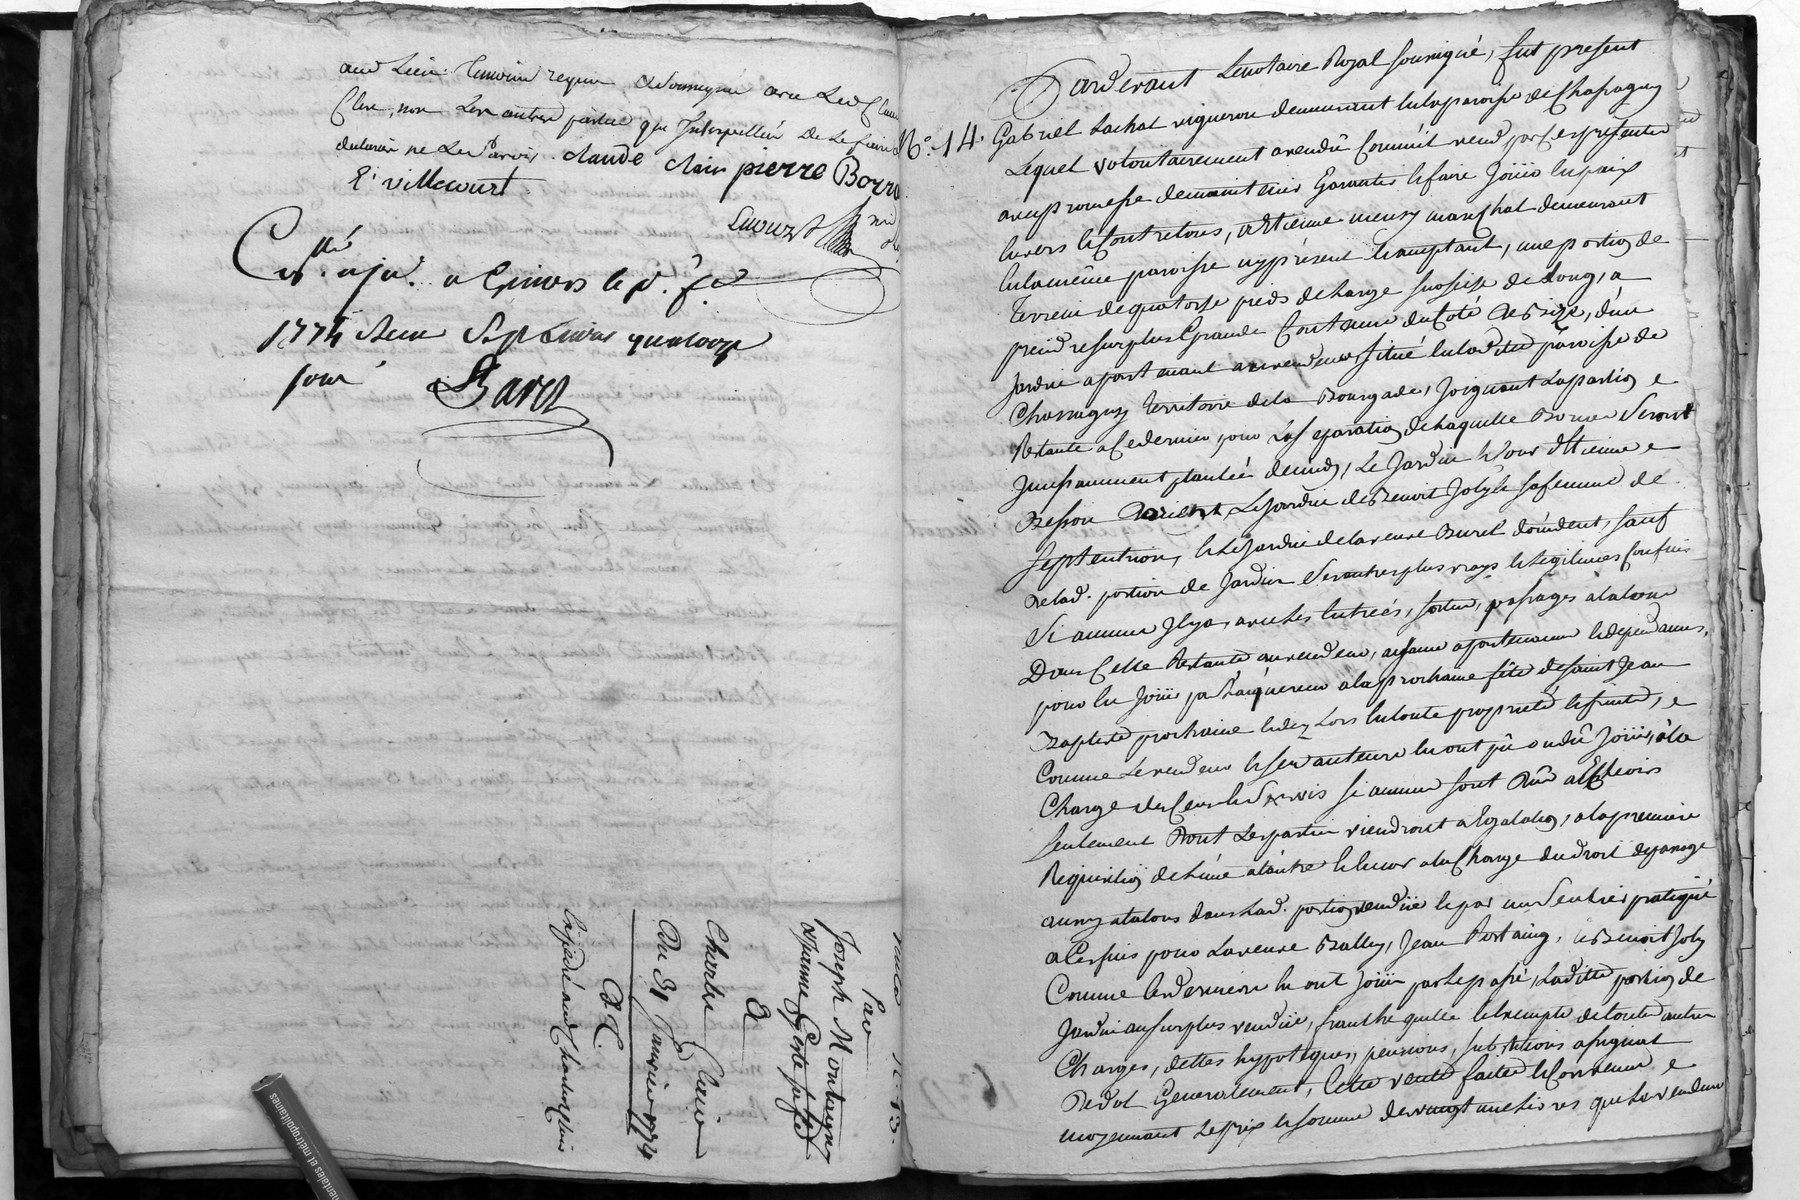 aud Lieu temoins requis et soussignés avec Led. Claude
Clere, non Les autres parties qui Interpellés de Le faire
declarés ne Le Savoir. claude clair pierre Borra
E. villecourt
Lhuuz
Con.lé a Givors le p. f.
1774 Reçu Sept Livres quatorze
sous
Baret
vente N. 13.
Par
Joseph Montagny
& Jeanne Coste sa fe.
A
Charles Claire
Du 31 Janvier 1774
Exp.dié aud. Charles Clair
N.° 14.
Pardevant Le notaire Royal soussigné, fut present
Gabriel Lachat vigneron demeurant en la paroisse de Chassagny
Lequel volontairement a vendû Comm'il vend par Ces presentes
avec promesse de maintenir Garantir et faire Joüir en paix
envers et Contre tous, a Etienne mensy marechal demeurant
en la même paroisse icy présent et acceptant, une portion de
terrein de quatorse pieds de large sur seise de Long, a
prendre sur plus Grande Contenue du Coté de Bize, d'un
Jardin apartenant au vendeur situé en la ditte paroisse de
Chassagny territoire de la Bourgade, Joignant La portion
Restante a Ce dernier, pour La separation de Laquelle Bornes Seront
Incessamment plantées de midy, Le Jardin et Cour d'Etienne
Besson d'orient, Le Jardin de Benoit Joly et sa femme de
septentrion, et Le Jardin de la veuve Burel d'occident, sauf
de lad. portion de Jardin Ses autres plus vrays et Legitimes Confins
Si aucuns Il y a, avec ses Entrées, sorties, passages a talons
Dans Celle Restante au vendeur, aisances apartenances et dependances,
pour En Joüir par L'acquereur a la prochaine fête de Saint Jean
Baptiste prochaine et dez Lors En toute proprieté et fruits,
Comme Le vendeur et ses auteurs En ont pû ou dû Joüir, a La
Charge des Cens et Servis si aucuns sont Dûs a Echeoir
seulement Dont Les parties viendront a Egalation, a la premiere
Requisition de L'une a L'autre et Encor a la Charge du droit de passage
aussy a talons dans Lad. portion vendüe et par un Sentier pratiqué
a Ces fins pour La veuve Balley, Jean Bertaing, et Benoit Joly
Comme Ces derniers En ont Joüi par Le passé, Laditte portion de
Jardin au surplus vendüe, franche quitte et Exempte de toutes autres
Charges, dettes hypoteques, pensions, substitutions assignat
de dot Generalement, Cette vente faitte et Convenue,
moyennant Le prix et somme de vingt une Livres que Le vendeur